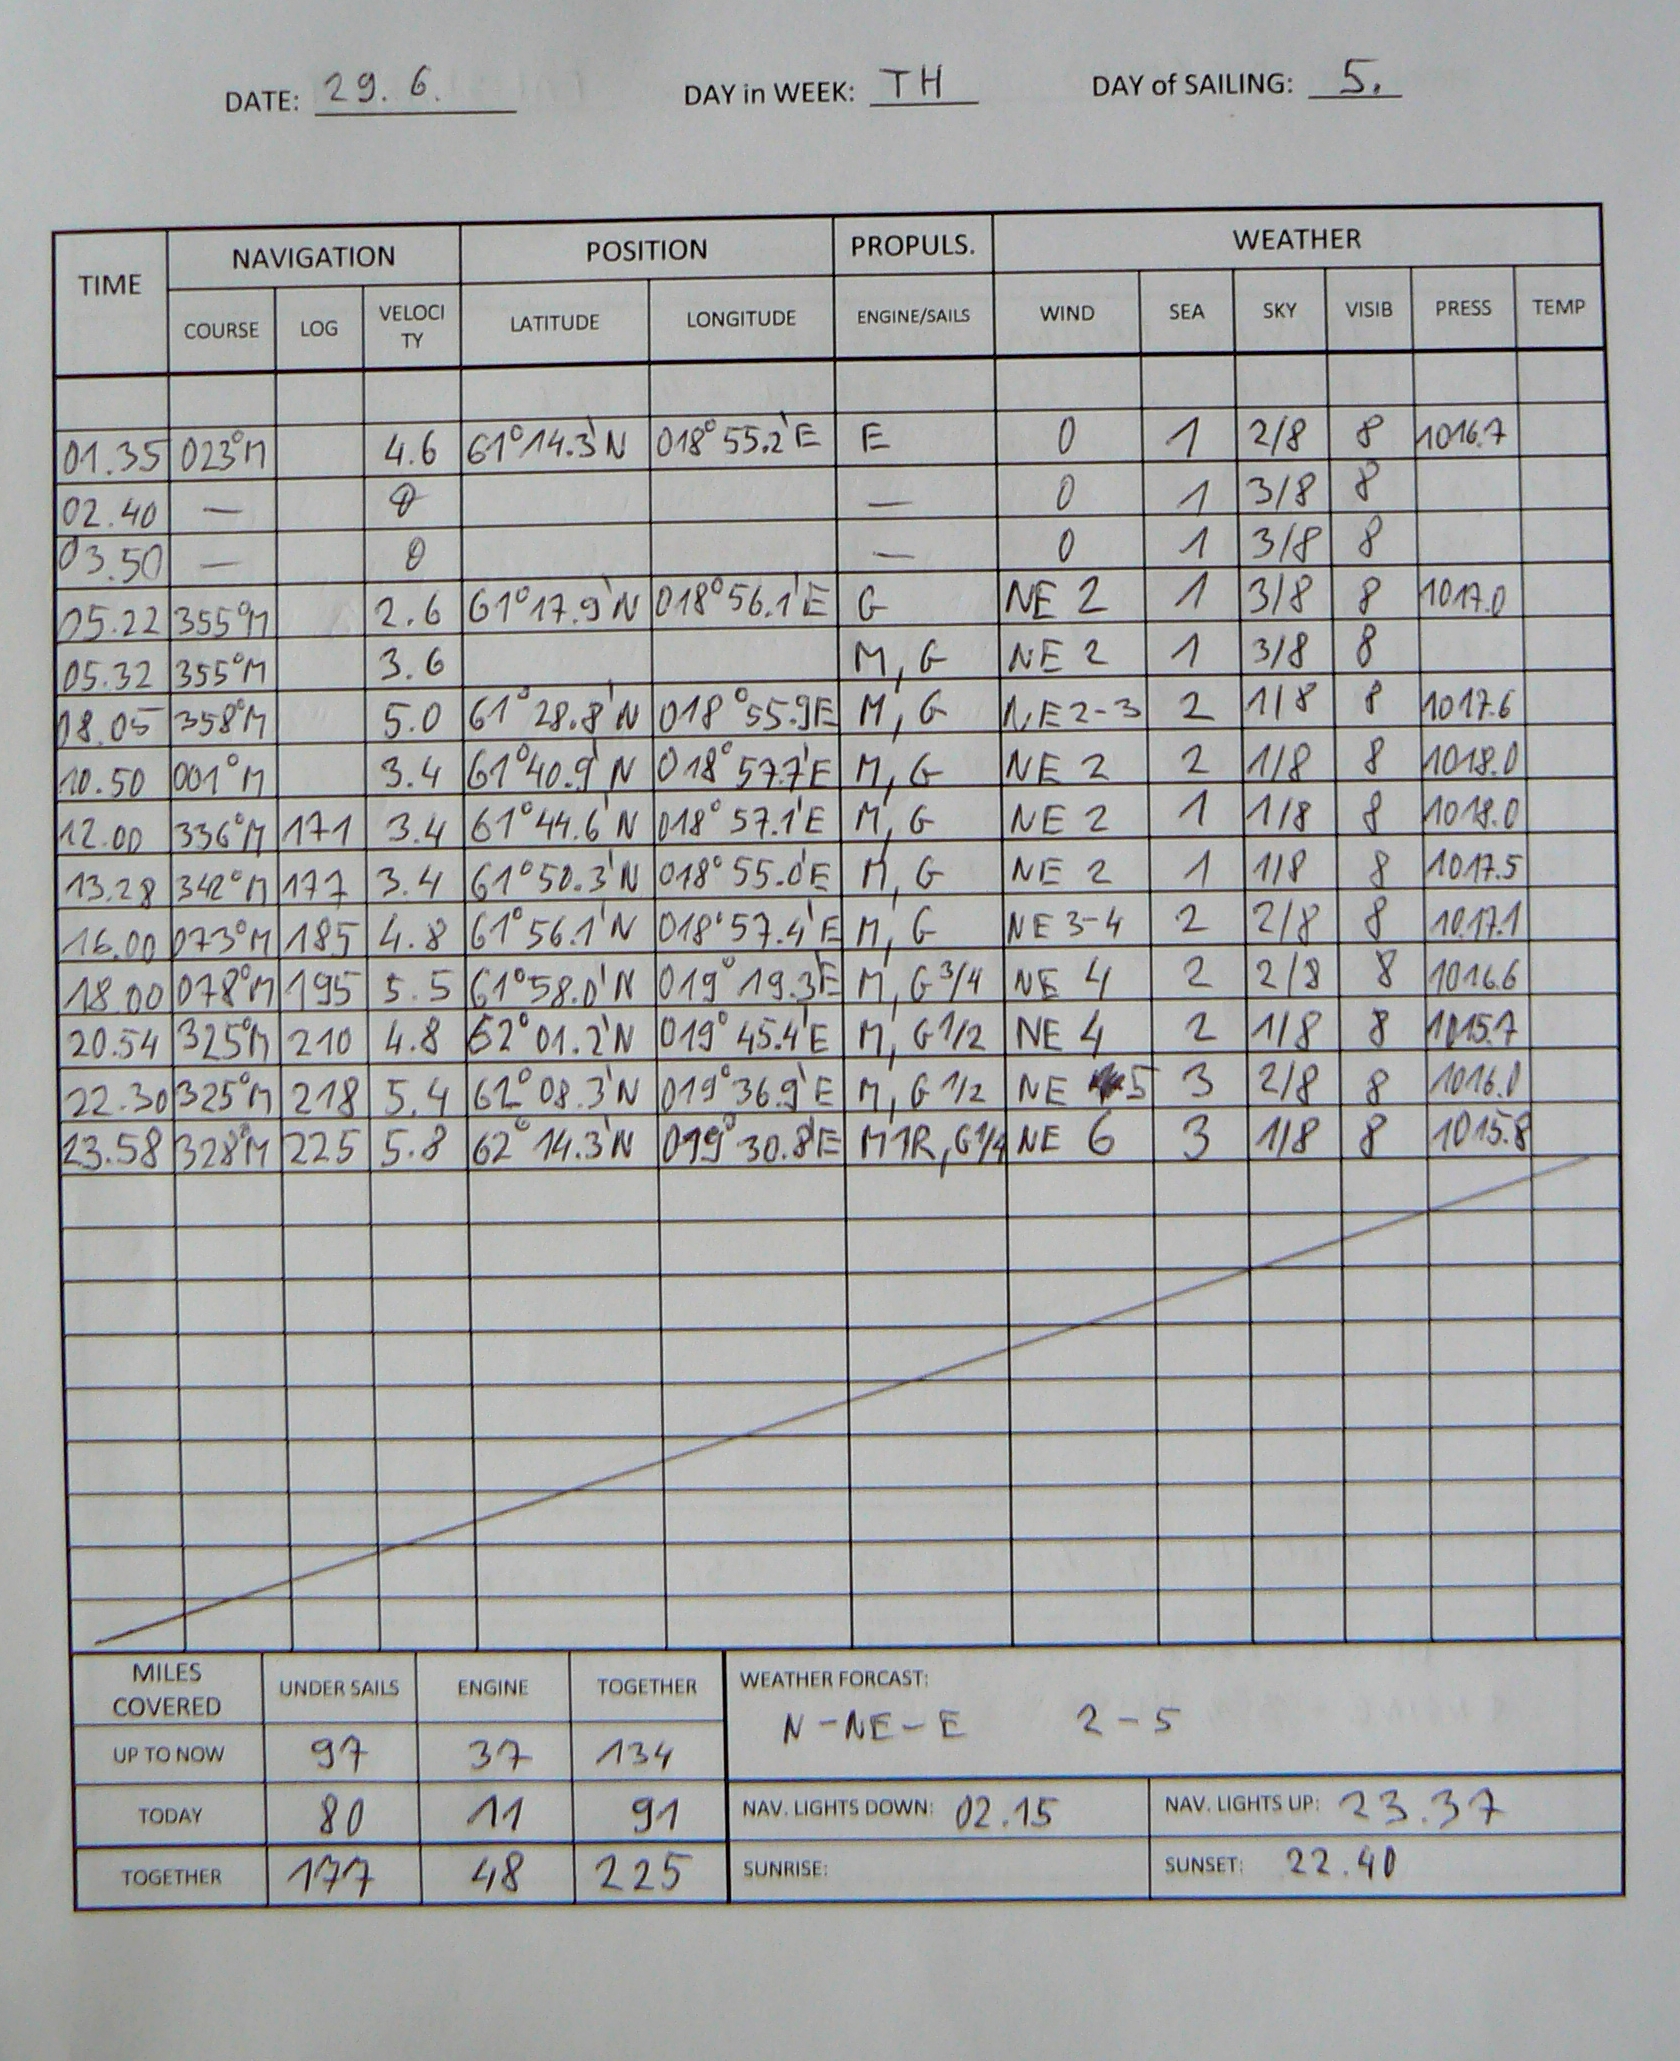 DATE: 29. 6. DAY in WEEK: TH DAY of SAILING: 5.
TIME NAVIGATION POSITION PROPULS. WEATHER
COURSE LOG VELOCI TY LATITUDE LONGITUDE ENGINE/SAILS WIND SEA SKY VISIB PRESS TEMP
01.35 023°M 4.6 61°14.3'N 018°55.2'E E 0 1 2/8 8 1016.7
02.40 — 0 — 0 1 3/8 8
03.50 — 0 — 0 1 3/8 8
05.22 355°M 2.6 61°17.9'N 018°56.1'E G NE 2 1 3/8 8 1017.0
05.32 355°M 3.6 M, G NE 2 1 3/8 8
08.05 358°M 5.0 61°28.8'N 018°55.9'E M, G NE 2-3 2 1/8 8 1017.6
10.50 001°M 3.4 61°40.9'N 018°57.7'E M, G NE 2 2 1/8 8 1018.0
12.00 336°M 171 3.4 61°44.6'N 018°57.1'E M, G NE 2 1 1/8 8 1018.0
13.28 342°M 177 3.4 61°50.3'N 018°55.0'E M, G NE 2 1 1/8 8 1017.5
16.00 073°M 185 4.8 61°56.1'N 018°57.4'E M, G NE 3-4 2 2/8 8 1017.1
18.00 078°M 195 5.5 61°58.0'N 019°19.3'E M, G 3/4 NE 4 2 2/8 8 1016.6
20.54 325°M 210 4.8 62°01.2'N 019°45.4'E M, G 1/2 NE 4 2 1/8 8 1015.7
22.30 325°M 218 5.4 62°08.3'N 019°36.9'E M, G 1/2 NE 5 3 2/8 8 1016.0
23.58 328°M 225 5.8 62°14.3'N 019°30.8'E M1R, G 1/4 NE 6 3 1/8 8 1015.8
MILES COVERED UNDER SAILS ENGINE TOGETHER
UP TO NOW 97 37 134
TODAY 80 11 91
TOGETHER 177 48 225
WEATHER FORCAST:
N-NE-E 2-5
NAV. LIGHTS DOWN: 02.15 NAV. LIGHTS UP: 23.37
SUNRISE: SUNSET: 22.40